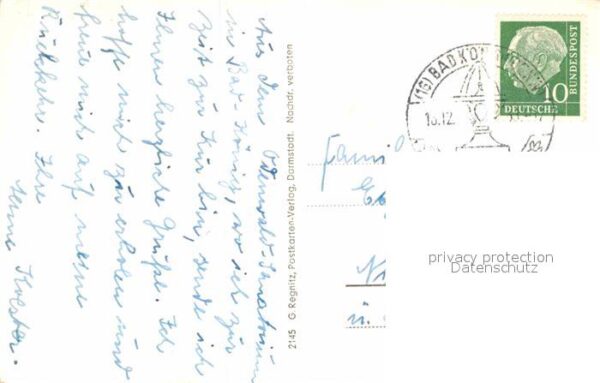 Aus dem Odenwald-Sanatorium
in Bad-König, wo ich zur
Zeit zur Kur bin, sende ich
Ihnen herzliche Grüße. Ich
hoffe mich zu erholen und
freue mich auf meine
Rückkehr. Ihre
Anne Koester.
2145 G. Regnitz, Postkarten-Verlag, Darmstadt. Nachdr. verboten
(16) BAD KÖNIG
10.12.
DEUTSCHE
BUNDESPOST
10
Famil
privacy protection
Datenschutz